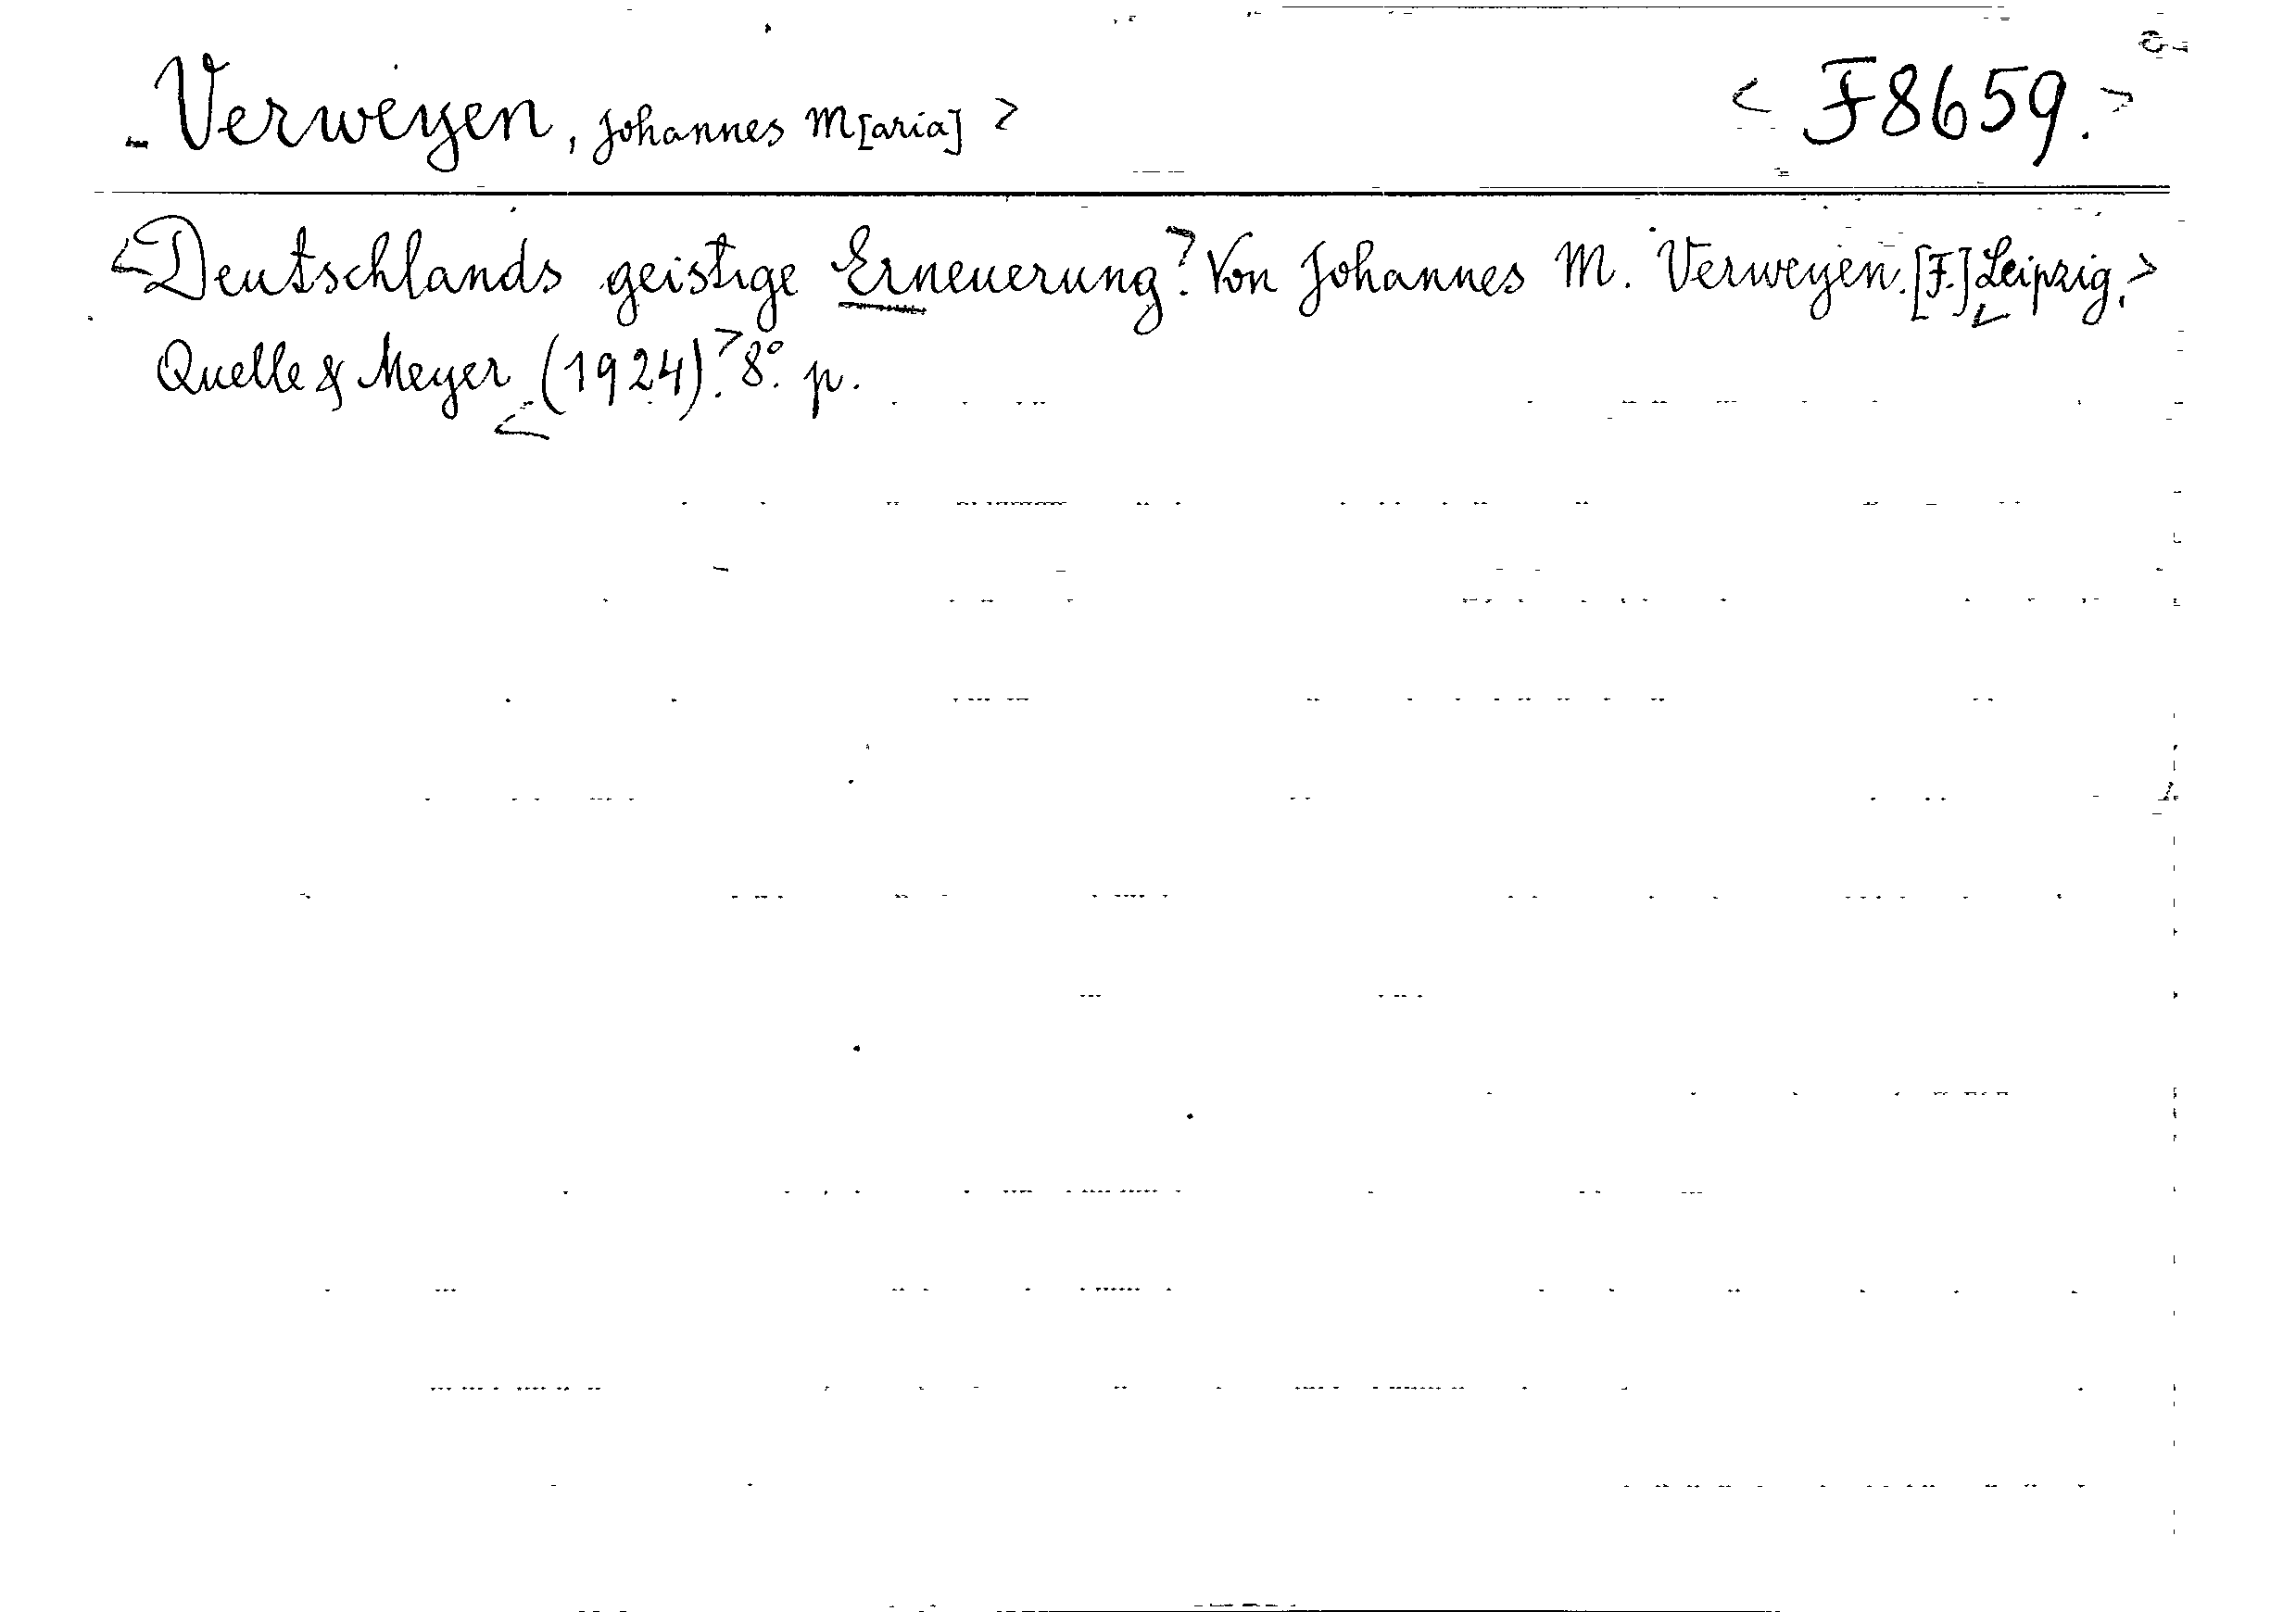 Verweyen, Johannes M[aria] > < F8659. >
<Deutschlands geistige Erneuerung.> Von Johannes M. Verweyen. [F.] <Leipzig,>
Quelle & Meyer <(1924).> 8°. p.